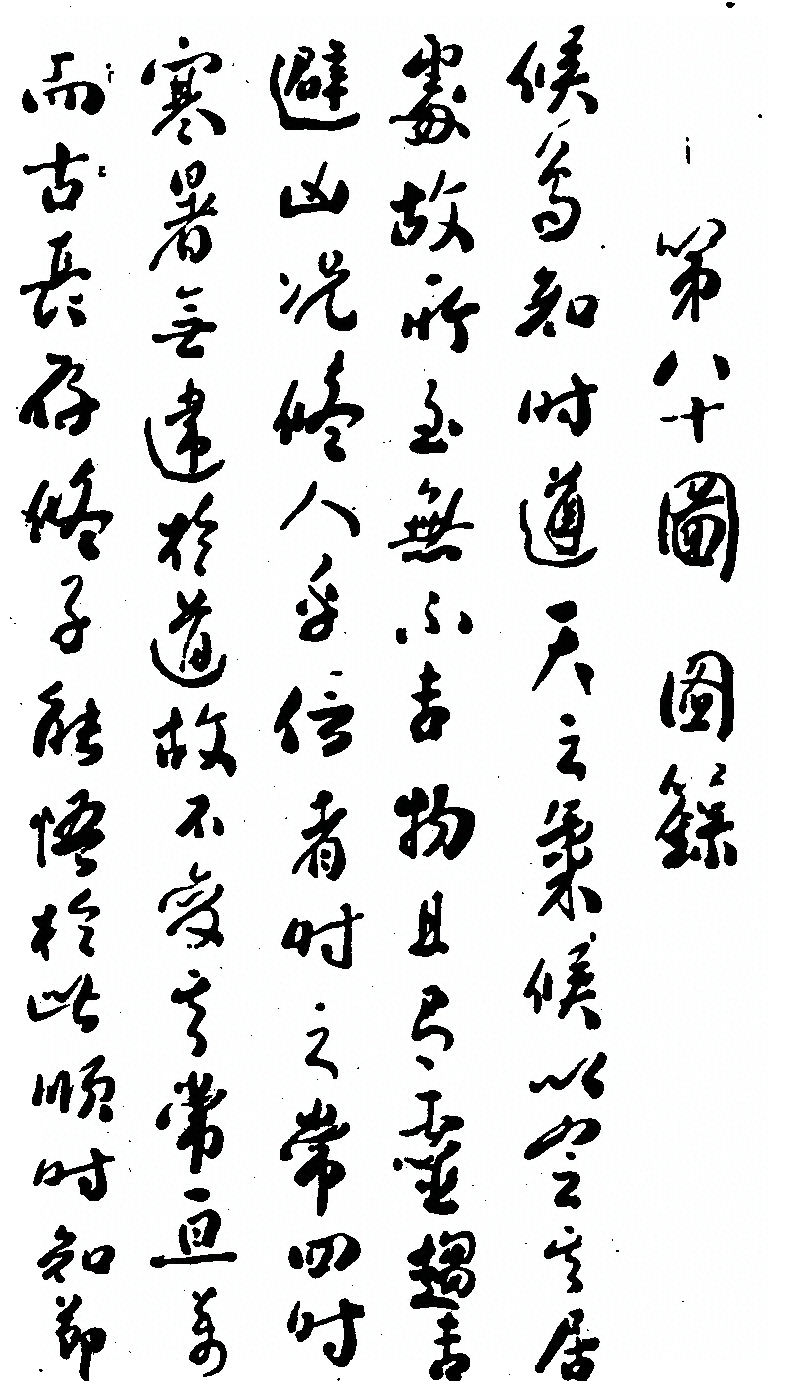 第八十圖 圖籙
候鳥知时道天之氣候以定其居
處故所至無不吉物且有靈趨吉
避凶况修人乎信者时之常四时
寒暑無違於道故不變其常亘萬
而古長存修子能悟於此順时知節